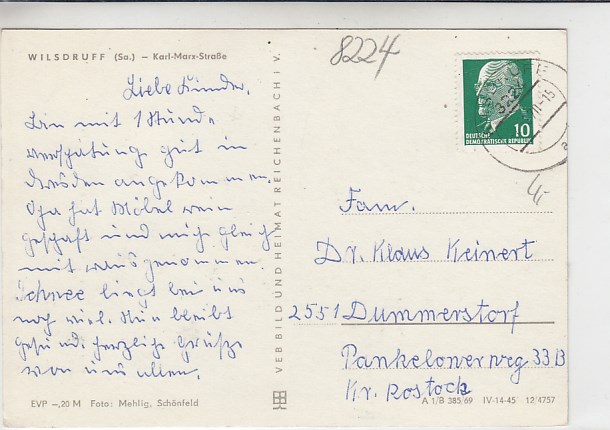 WILSDRUFF (Sa.) – Karl-Marx-Straße
8224
Liebe Kinder,
Bin mit 1 Stunde
verspätung gut in
Dresden angekommen.
Opa hat Möbel rein
geschaft und mich gleich
mit rausgenommen.
Schnee liegt bei uns
noch viel. Nun bleibt
gesund. herzliche Grüße
von uns allen.
EVP –,20 M Foto: Mehlig, Schönfeld
VEB BILD UND HEIMAT REICHENBACH I V.
10
DEUTSCHE
DEMOKRATISCHE REPUBLIK
4,-
Fam.
Dr. Klaus Keinert
2551 Dummerstorf
Pankelowerweg 33B
Kr. Rostock
A 1/B 385/69 IV-14-45 12/4757